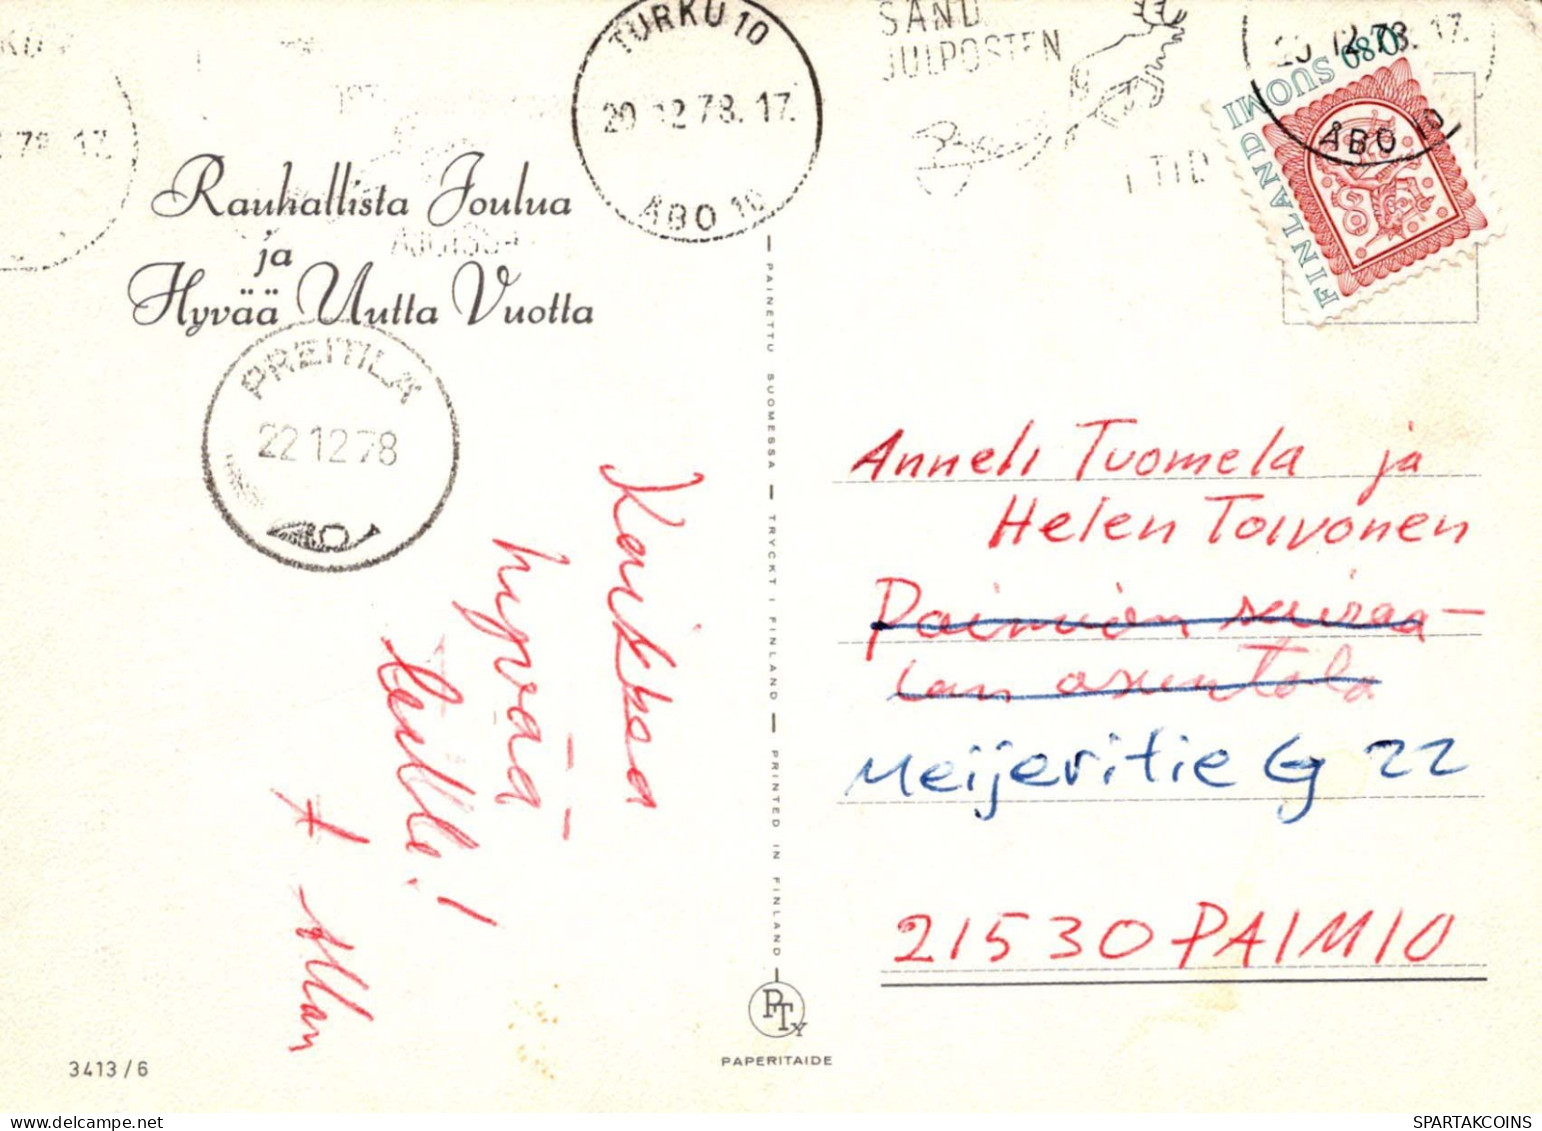 TURKU 10
20 12.78.17.
ÅBO 10
SÄND
JULPOSTEN
I TID
12.78. 17.
ÅBO 10
0,80
SUOMI
FINLAND
78 17.
Rauhallista Joulua
ja
Hyvää Uutta Vuotta
PREITILÄ
22 12 78
Kaikkea
hyvää
teille!
Allan
PAINETTU SUOMESSA — TRYCKT I FINLAND — PRINTED IN FINLAND
PTY
PAPERITAIDE
3413/6
Anneli Tuomela ja
Helen Toivonen
Paimion sairaa-
lan asuntola
Meijeritie G 22
21530 PAIMIO
SPARTAKCOINS